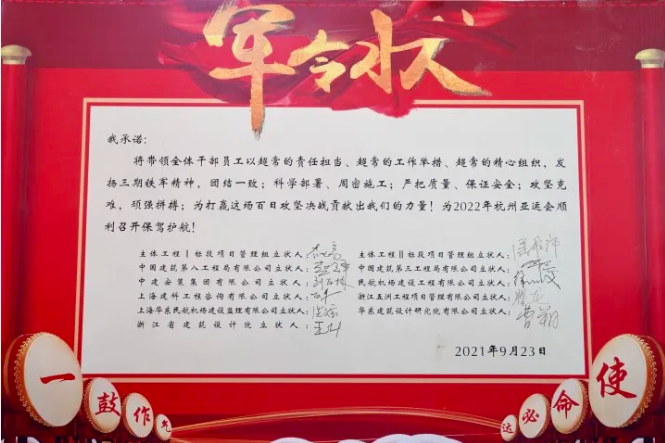 军令状
我承诺：
将带领全体干部员工以超常的责任担当、超常的工作举措、超常的精心组织，发
扬三期铁军精神，团结一致；科学部署、周密施工；严把质量、保证安全；攻坚克
难，顽强拼搏；为打赢这场百日攻坚决战贡献出我们的力量！为2022年杭州亚运会顺
利召开保驾护航！
主体工程Ⅰ标段项目管理组立状人：
主体工程Ⅱ标段项目管理组立状人：
中国建筑第八工程局有限公司立状人：
中国建筑第三工程局有限公司立状人：
中建安装集团有限公司立状人：
民航机场建设工程有限公司立状人：
上海建科工程咨询有限公司立状人：
浙江五洲工程项目管理有限公司立状人：
上海华东民航机场建设监理有限公司立状人：
华东建筑设计研究院有限公司立状人：
浙江省建筑设计院立状人：
2021年9月23日
一鼓作气
使命必达